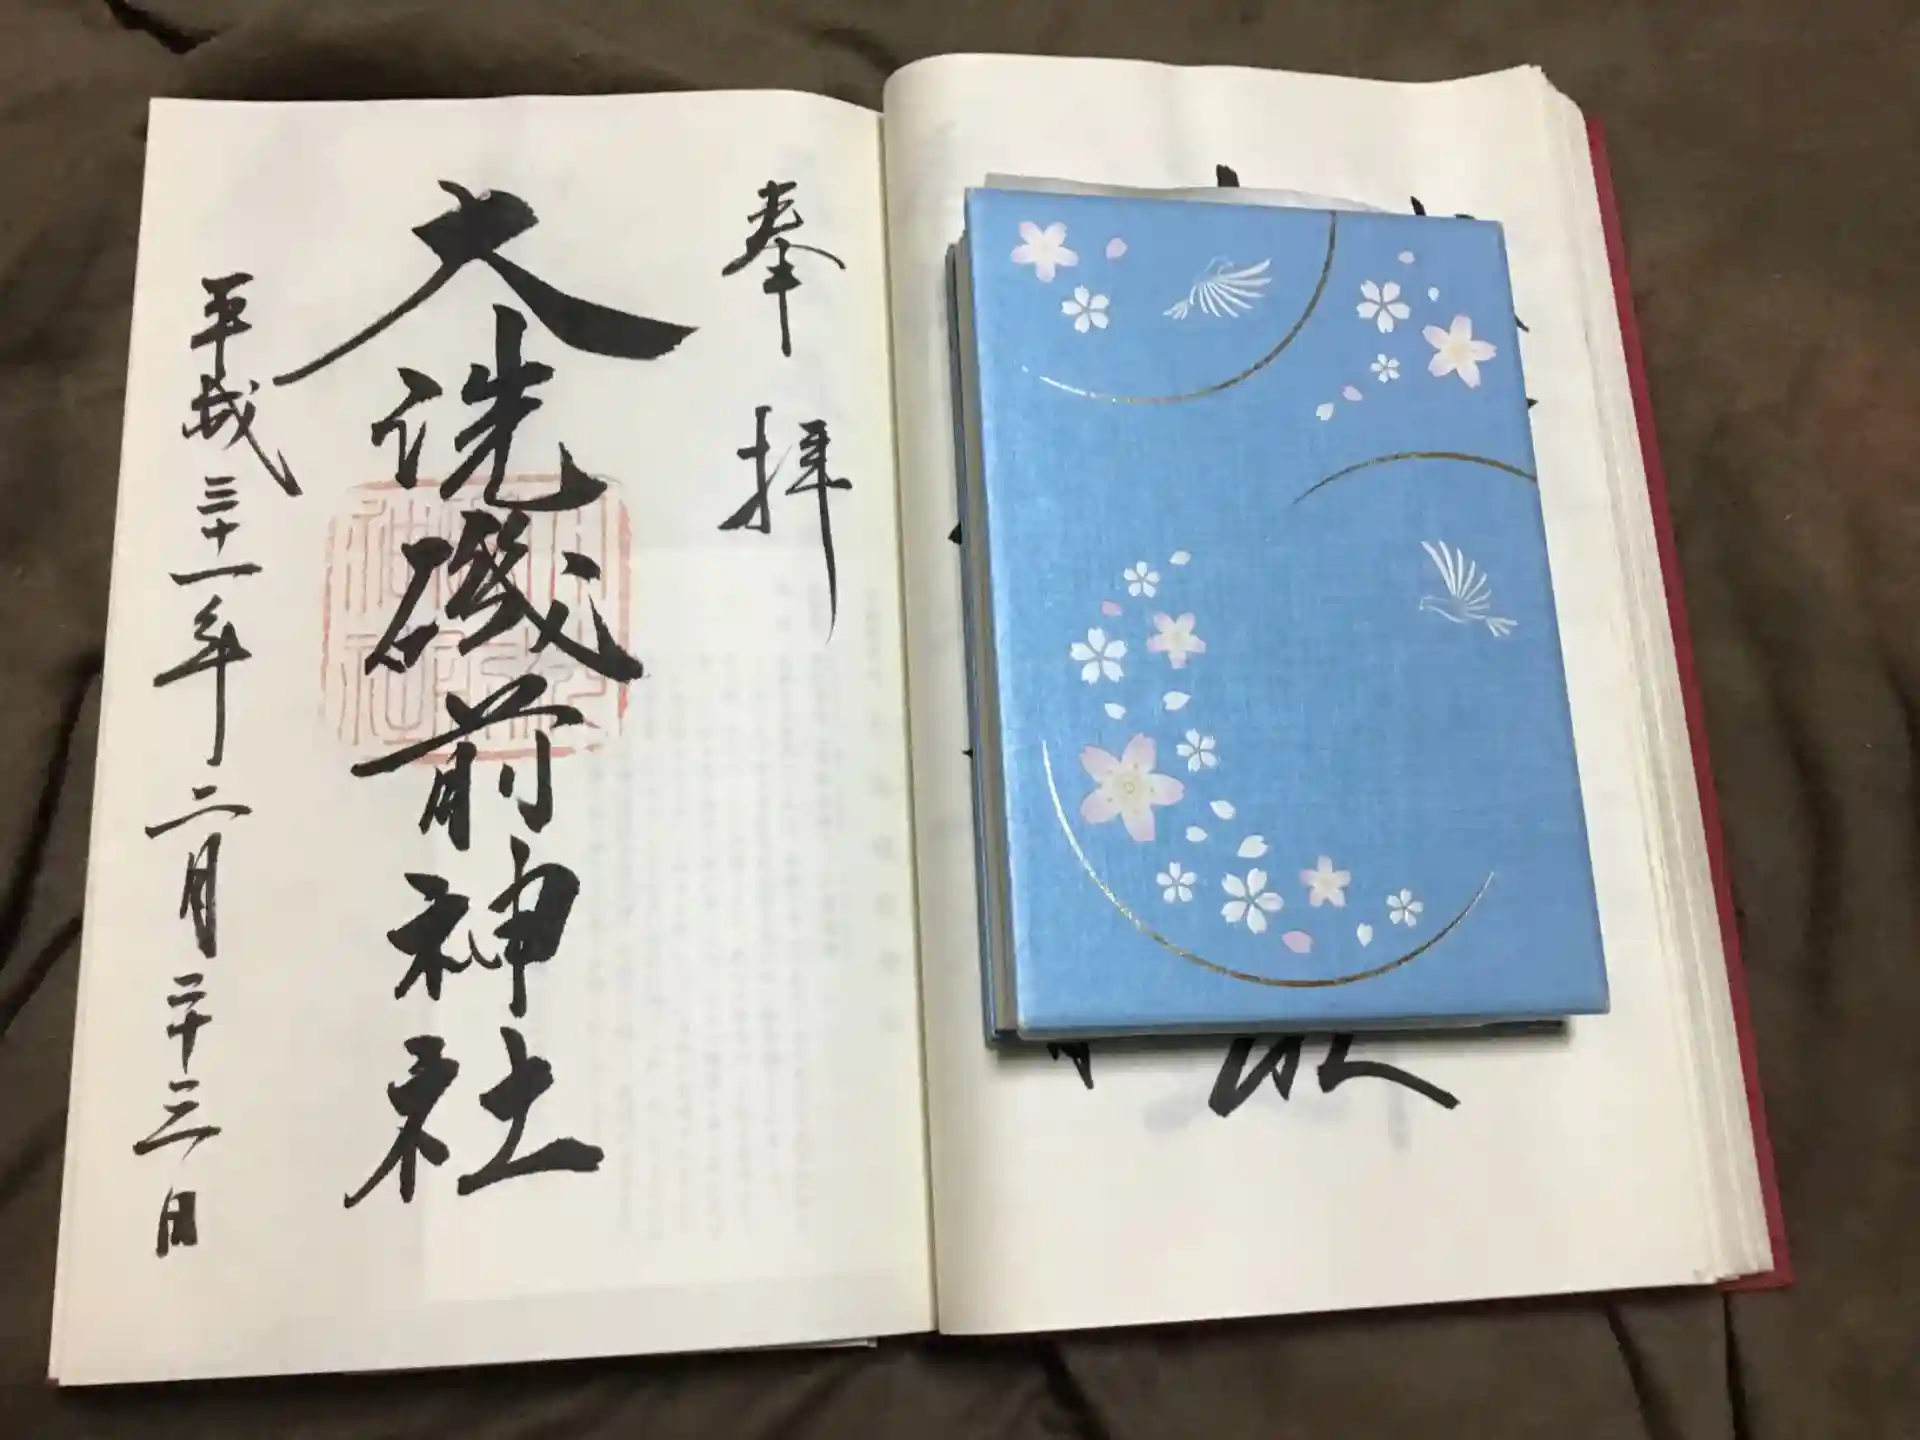 奉拝
大洗磯前神社
平成三十一年二月二十三日